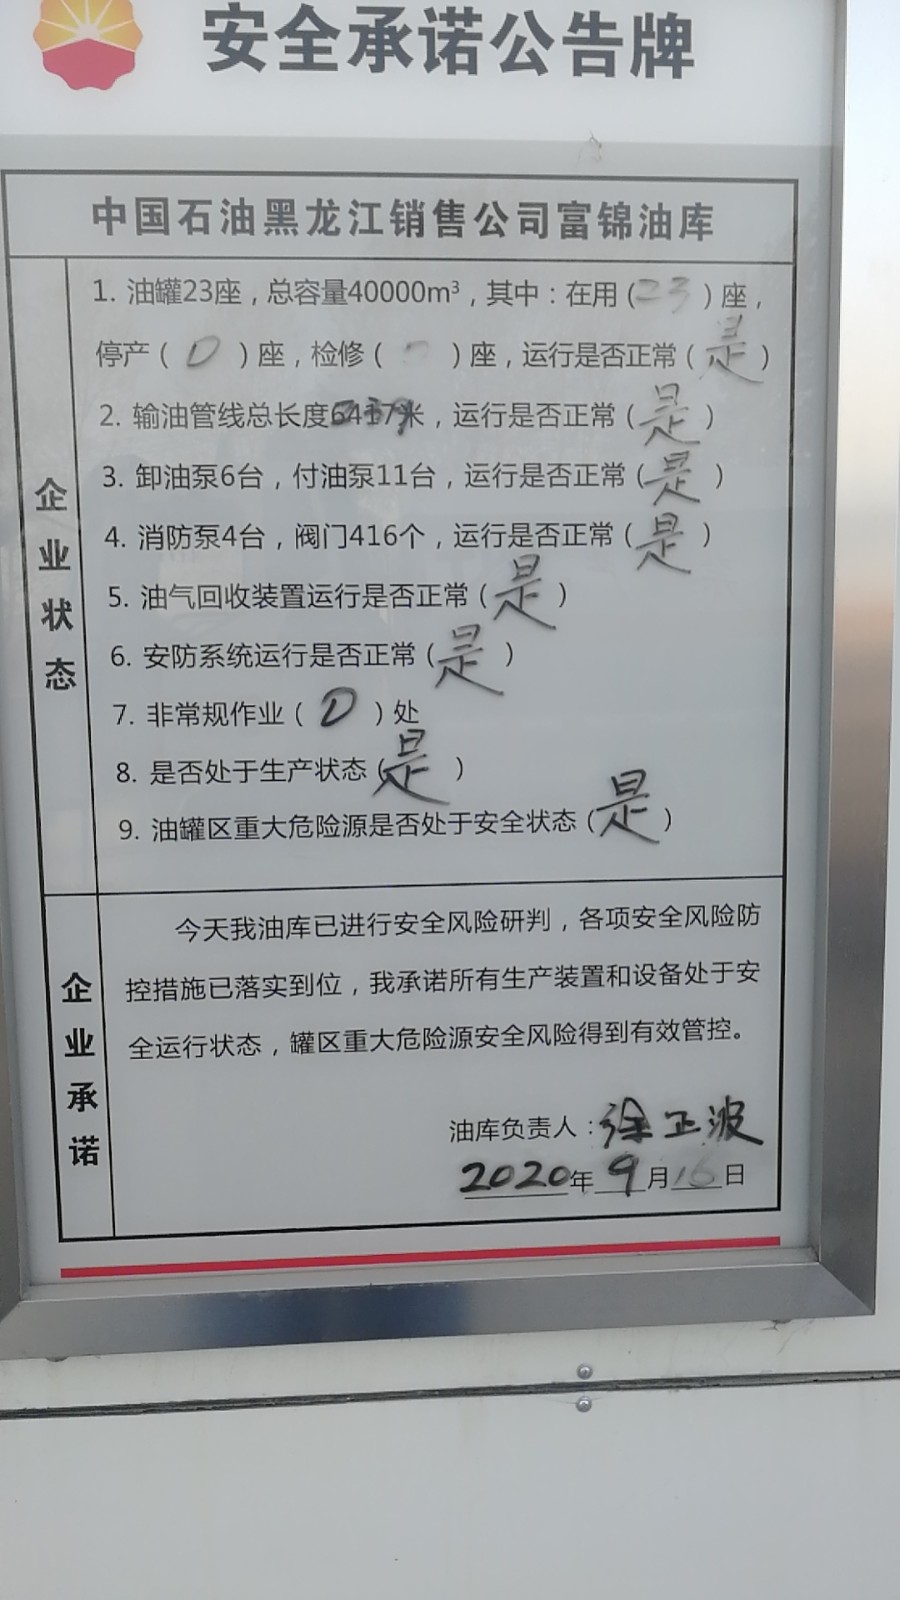 安全承诺公告牌
中国石油黑龙江销售公司富锦油库
企业状态
1. 油罐23座，总容量40000m³，其中：在用（23）座，
停产（0）座，检修（ ）座，运行是否正常（是）
2. 输油管线总长度米，运行是否正常（是）
3. 卸油泵6台，付油泵11台，运行是否正常（是）
4. 消防泵4台，阀门416个，运行是否正常（是）
5. 油气回收装置运行是否正常（是）
6. 安防系统运行是否正常（是）
7. 非常规作业（0）处
8. 是否处于生产状态（是）
9. 油罐区重大危险源是否处于安全状态（是）
企业承诺
今天我油库已进行安全风险研判，各项安全风险防
控措施已落实到位，我承诺所有生产装置和设备处于安
全运行状态，罐区重大危险源安全风险得到有效管控。
油库负责人：徐正波
2020年9月16日